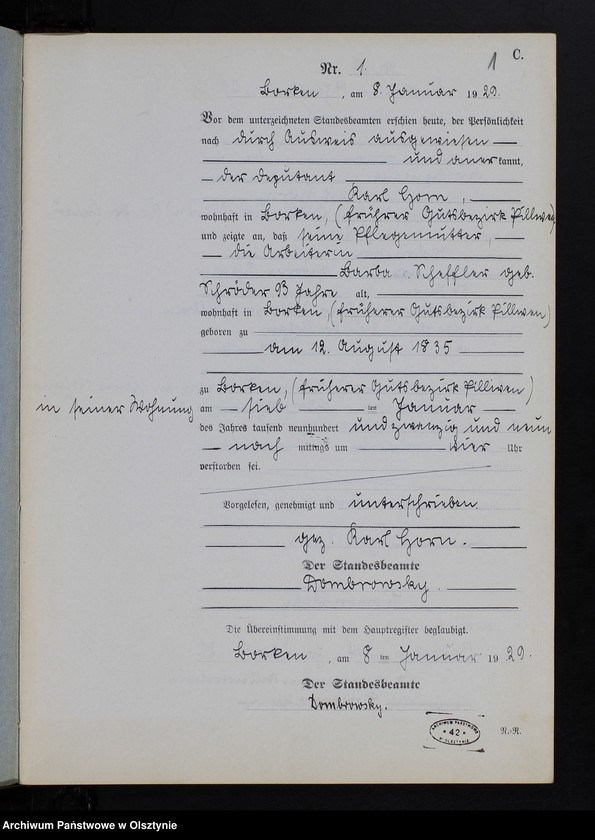 C.
1
Nr. 1.
Borken, am 8. Januar 1929.
Vor dem unterzeichneten Standesbeamten erschien heute, der Persönlichkeit
nach durch Ausweis ausgewiesen
und anerkannt,
der Deputant
Karl Horn,
wohnhaft in Borken, (früherer Gutsbezirk Pillwen)
und zeigte an, daß seine Pflegemutter,
die Arbeiterin
Barba Scheffler geb.
Schröder 93 Jahre alt,
wohnhaft in Borken, (früherer Gutsbezirk Pillwen)
geboren zu
am 12. August 1835
zu Borken, (früherer Gutsbezirk Pilliwen)
in seiner Wohnung
am sieb ten Januar
des Jahres tausend neunhundert undzwanzig und neun
nach mittags um vier Uhr
verstorben sei.
Vorgelesen, genehmigt und unterschrieben.
gez. Karl Horn.
Der Standesbeamte
Dombrowsky.
Die Übereinstimmung mit dem Hauptregister beglaubigt.
Borken, am 8 ten Januar 1929.
Der Standesbeamte
Dombrowsky.
ARCHIWUM PAŃSTWOWE
* 42 *
W OLSZTYNIE
R.-R.
Archiwum Państwowe w Olsztynie